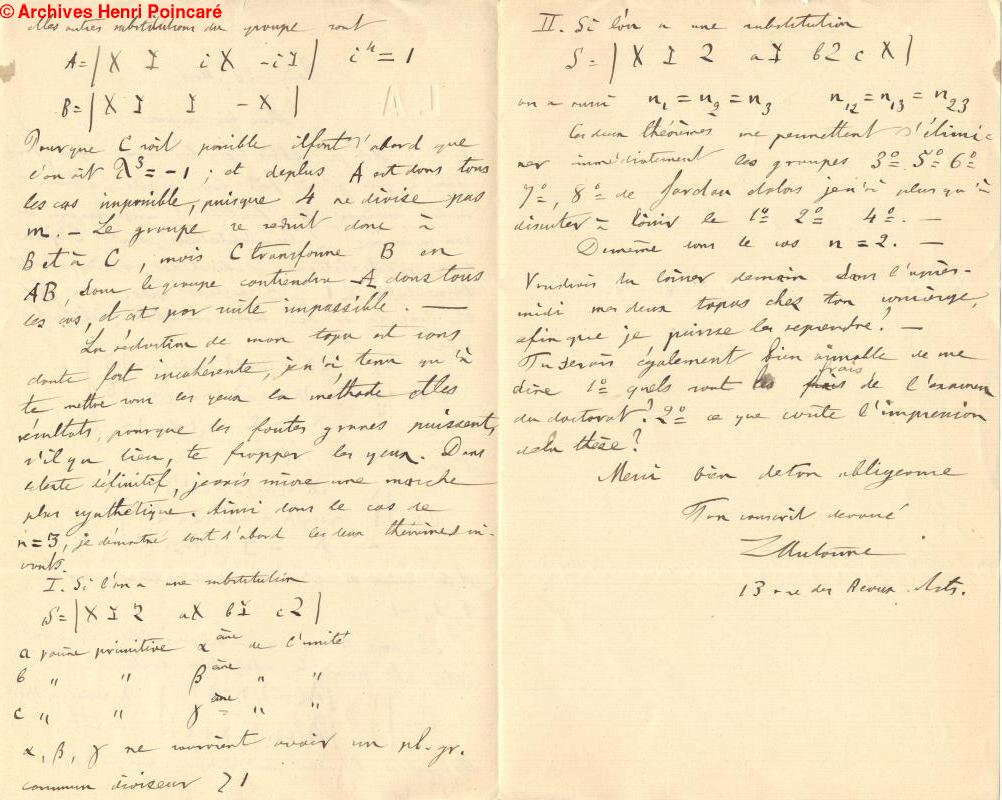 © Archives Henri Poincaré
Les autres substitutions du groupe sont
A = | X Y iX -iY | i⁴ = 1
B = | X Y Y -X |
Pour que C soit possible il faut d'abord que
l'on ait λ³ = -1 ; et de plus A est dans tous
les cas impossible, puisque 4 ne divise pas
m. — Le groupe se réduit donc à
B et à C, mais C transforme B en
AB, donc le groupe contiendra A dans tous
les cas, et est par suite impossible. —
La rédaction de mon topo est sans
doute fort incohérente, je n'ai tenu qu'à
te mettre sous les yeux la méthode et les
résultats, pour que les fautes graves puissent,
s'il y a lieu, te frapper les yeux. Dans
le texte définitif, je vais suivre une marche
plus synthétique. Ainsi dans le cas de
n = 3, je démontre tout d'abord les deux théorèmes sui-
vants.
I. Si l'on a une substitution
S = | X Y Z aX bY cZ |
a racine primitive α ème de l'unité
b " " β ème " "
c " " γ ème " "
α, β, γ ne sauraient avoir un pl. gr.
commun diviseur > 1
II. Si l'on a une substitution
S = | X Y Z aY bZ cX |
on a aussi n₁ = n₂ = n₃ n₁₂ = n₁₃ = n₂₃
Ces deux théorèmes me permettent d'élimi-
ner immédiatement les groupes 3º 5º 6º
7º, 8º de Jordan et alors je n'ai plus qu'à
discuter à loisir le 1º 2º 4º. —
De même dans le cas n = 2. —
Voudrais tu laisser demain dans l'après-
midi mes deux topos chez ton concierge,
afin que je puisse les reprendre ? —
Tu serais également bien aimable de me
dire 1º quels sont les frais de l'examen
du doctorat ? 2º ce que coûte l'impression
de la thèse ?
Merci bien de ton obligeance
Ton conscrit dévoué
L Autonne
13 rue des Beaux-Arts.